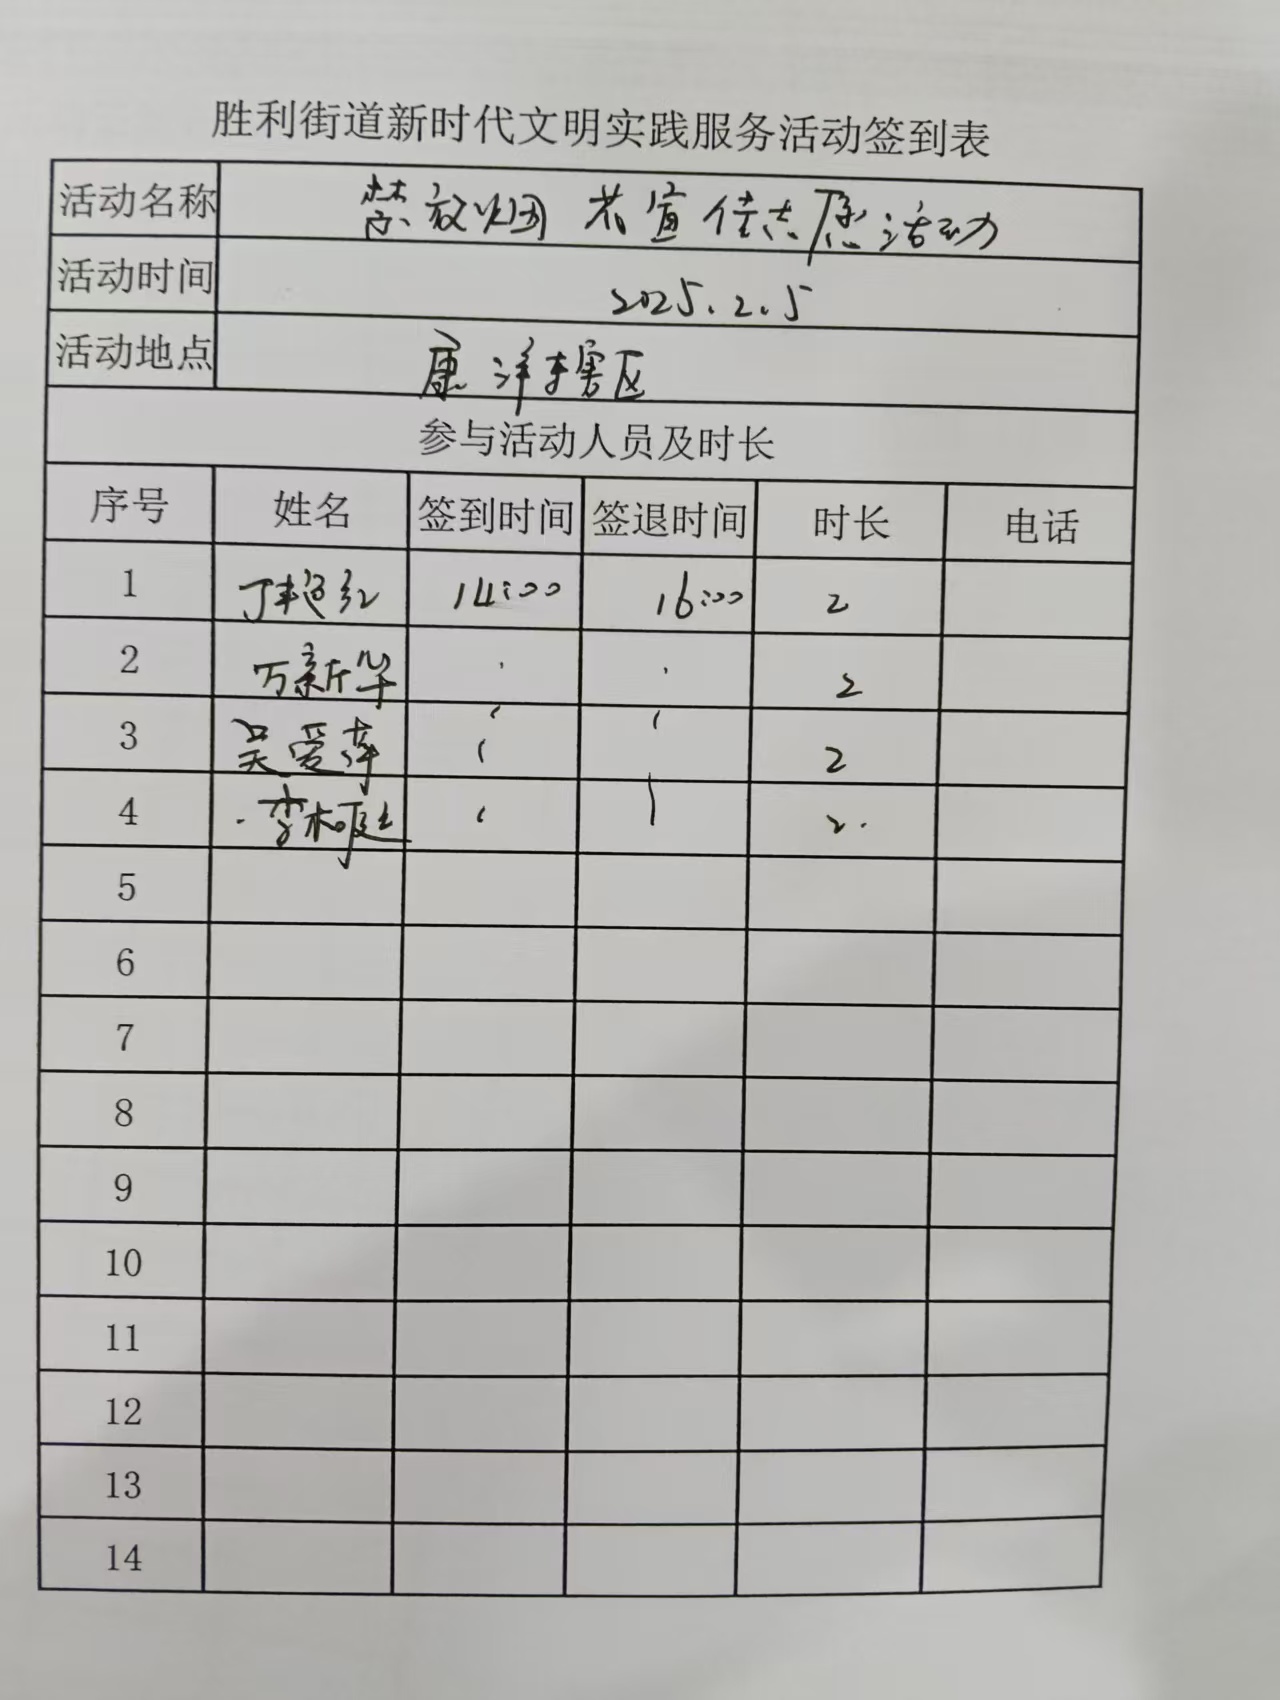 胜利街道新时代文明实践服务活动签到表
活动名称 禁放烟花宣传志愿活动
活动时间 2025.2.5
活动地点 康洋辖区
参与活动人员及时长
序号 姓名 签到时间 签退时间 时长 电话
1 丁 红 14:00 16:00 2
2 万新华 2
3 吴爱萍 2
4 李 2.
5
6
7
8
9
10
11
12
13
14